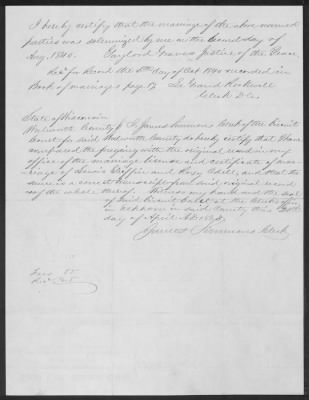 I hereby certify that the marriage of the above named
parties was solemnized by me on the second day of
Aug. 1840. Gaylord Graves Justice of the Peace
Recd for Record the 5th day of Oct 1840 recorded in
Book of marriages page 17 Le Grand Rockwell
Clerk D.C.
State of Wisconsin
Walworth County I, James Simmons Clerk of the Circuit
Court for said Walworth County do hereby certify that I have
compared the foregoing with the original record in my
office of the marriage license and certificate of mar-
riage of Lewis and and that the
same is a correct transcript from said original record
and of the whole thereof. Witness my hand and the seal
of said Circuit Court at the Clerk's office
in Elkhorn in said County this
day of April A.D.
James Simmons Clerk
Fees